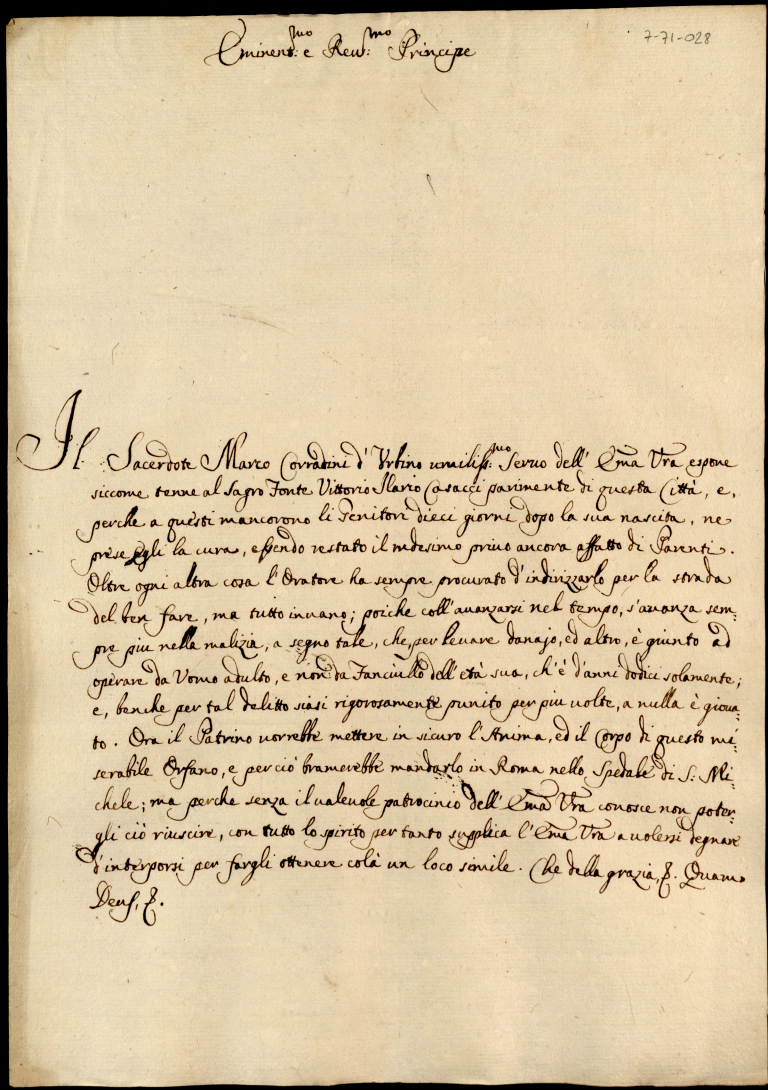 7-71-028
Eminent:mo e Reu:mo Principe
Il Sacerdote Marco Corradini d'Urbino umiliss:mo Seruo dell'Ema Vra espone
siccome tenne al Sagro Fonte Vittorio Ilario Casacci parimente di questa Città, e,
perche a questi mancorono li Genitori dieci giorni dopo la sua nascita, ne
prese Egli la cura, essendo restato il mdesimo priuo ancora affatto di Parenti.
Oltre ogni altra cosa l'Oratore ha sempre procurato d'indirizzarlo per la strada
del ben fare, ma tutto inuano; poiche coll'auanzarsi nel tempo, s'auanza sem-
pre piu nella malizia, a segno tale, che, per leuare danajo, ed altro, è giunto ad
operare da Vomo adulto, e non da Fanciullo dell'età sua, ch'è d'anni dodici solamente;
e, benche per tal delitto siasi rigorosamente punito per piu uolte, a nulla è gioua-
to. Ora il Patrino uorrebbe mettere in sicuro l'Anima, ed il Corpo di questo mi-
serabile Orfano, e perciò bramerebbe mandarlo in Roma nello Spedale di S. Mi-
chele; ma perche senza il ualeuole patrocinio dell'Ema Vra conosce non poter-
gli ciò riuscire, con tutto lo spirito per tanto supplica l'Ema Vra a uolersi degnare
d'interporsi per fargli ottenere colà un loco simile. Che della grazia, &. Quam
Deus, &.